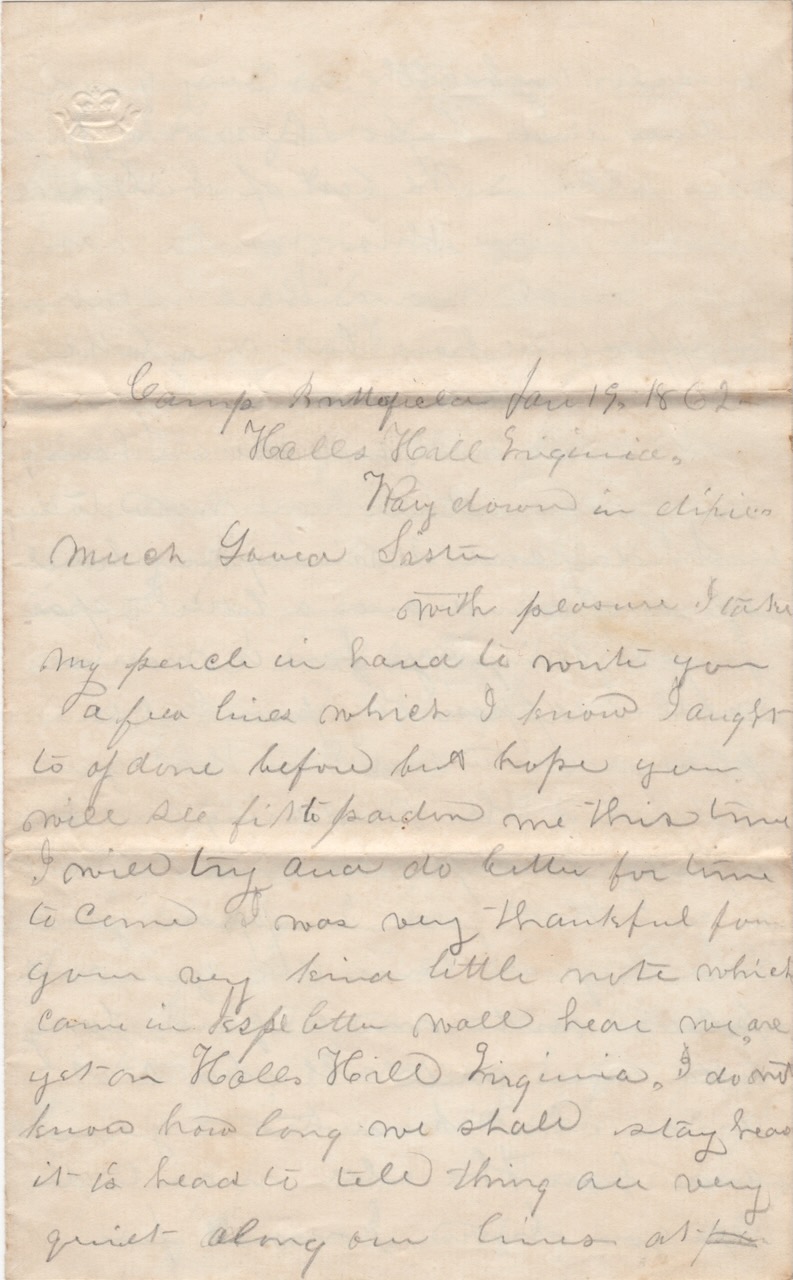 Camp Butterfield Jan 19, 1862
Halls Hill Virginia.
Way down in dixie
Much Loved Sister
With pleasure I take
my pencle in hand to write you
a few lines which I know I aught
to of done before but hope you
will see fit to pardon me this time
I will try and do better for time
to come I was very thankful for
your very kind little note which
came in letter wall hear we are
yet on Halls Hill Virginia. I do not
know how long we shall stay hear
it is head to tell thing are very
quiet along our lines at